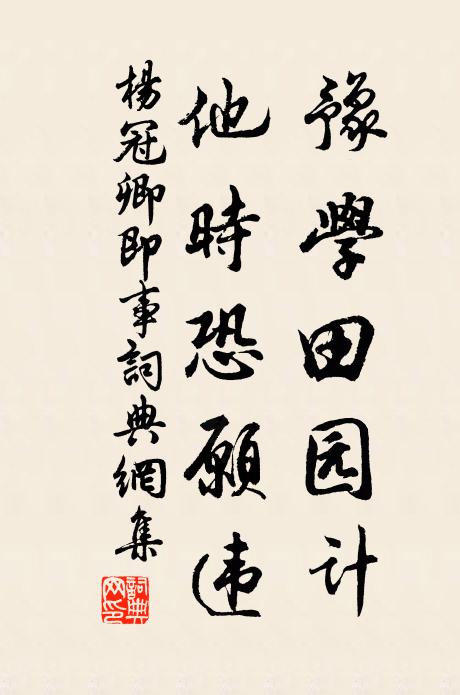 豫學田园计
他時恐願违
楊冠卿即事詞典網集
詞典网印